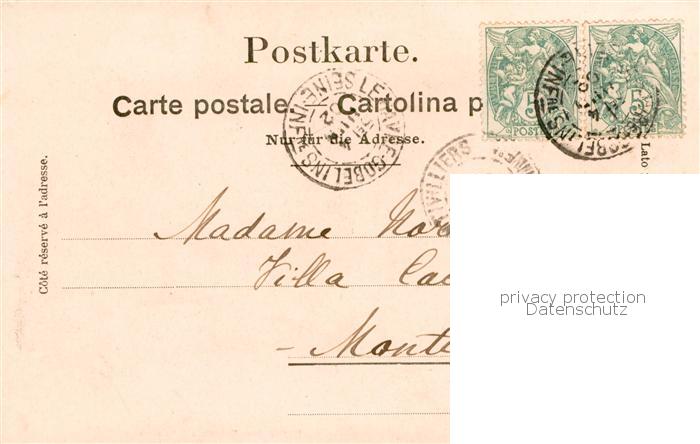 Postkarte.
Carte postale. Cartolina p
Nur für die Adresse.
Côté réservé à l'adresse.
Lato
5
POSTES
LE HAVRE-GOBELINS
SEINE INFRE
IVILLIERS
Madame Nor
Villa Ca
- Monte
privacy protection
Datenschutz